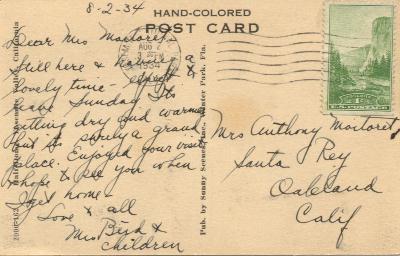 8-2-34
HAND-COLORED
POST CARD
AUG 2
1934
U.S. POSTAGE
Dear Mrs Martoret,
Still here & having a
lovely time - expect to
leave Sunday. Its
getting dry and warm
but its surely a grand
place. Enjoyed your visit
& hope to see you when
I get home -
Love to all
Mrs Bird &
children
Pub. by Sunny Scenes, Inc., Winter Park, Fla.
Mrs Anthony Martoret
Santa Rey
Oakland
Calif